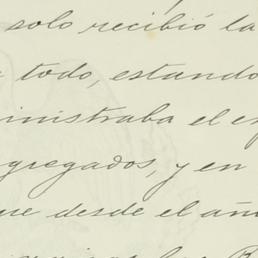 solo recibió la
todo, estando
inistraba el ex
gregados, y en
ue desde el añ